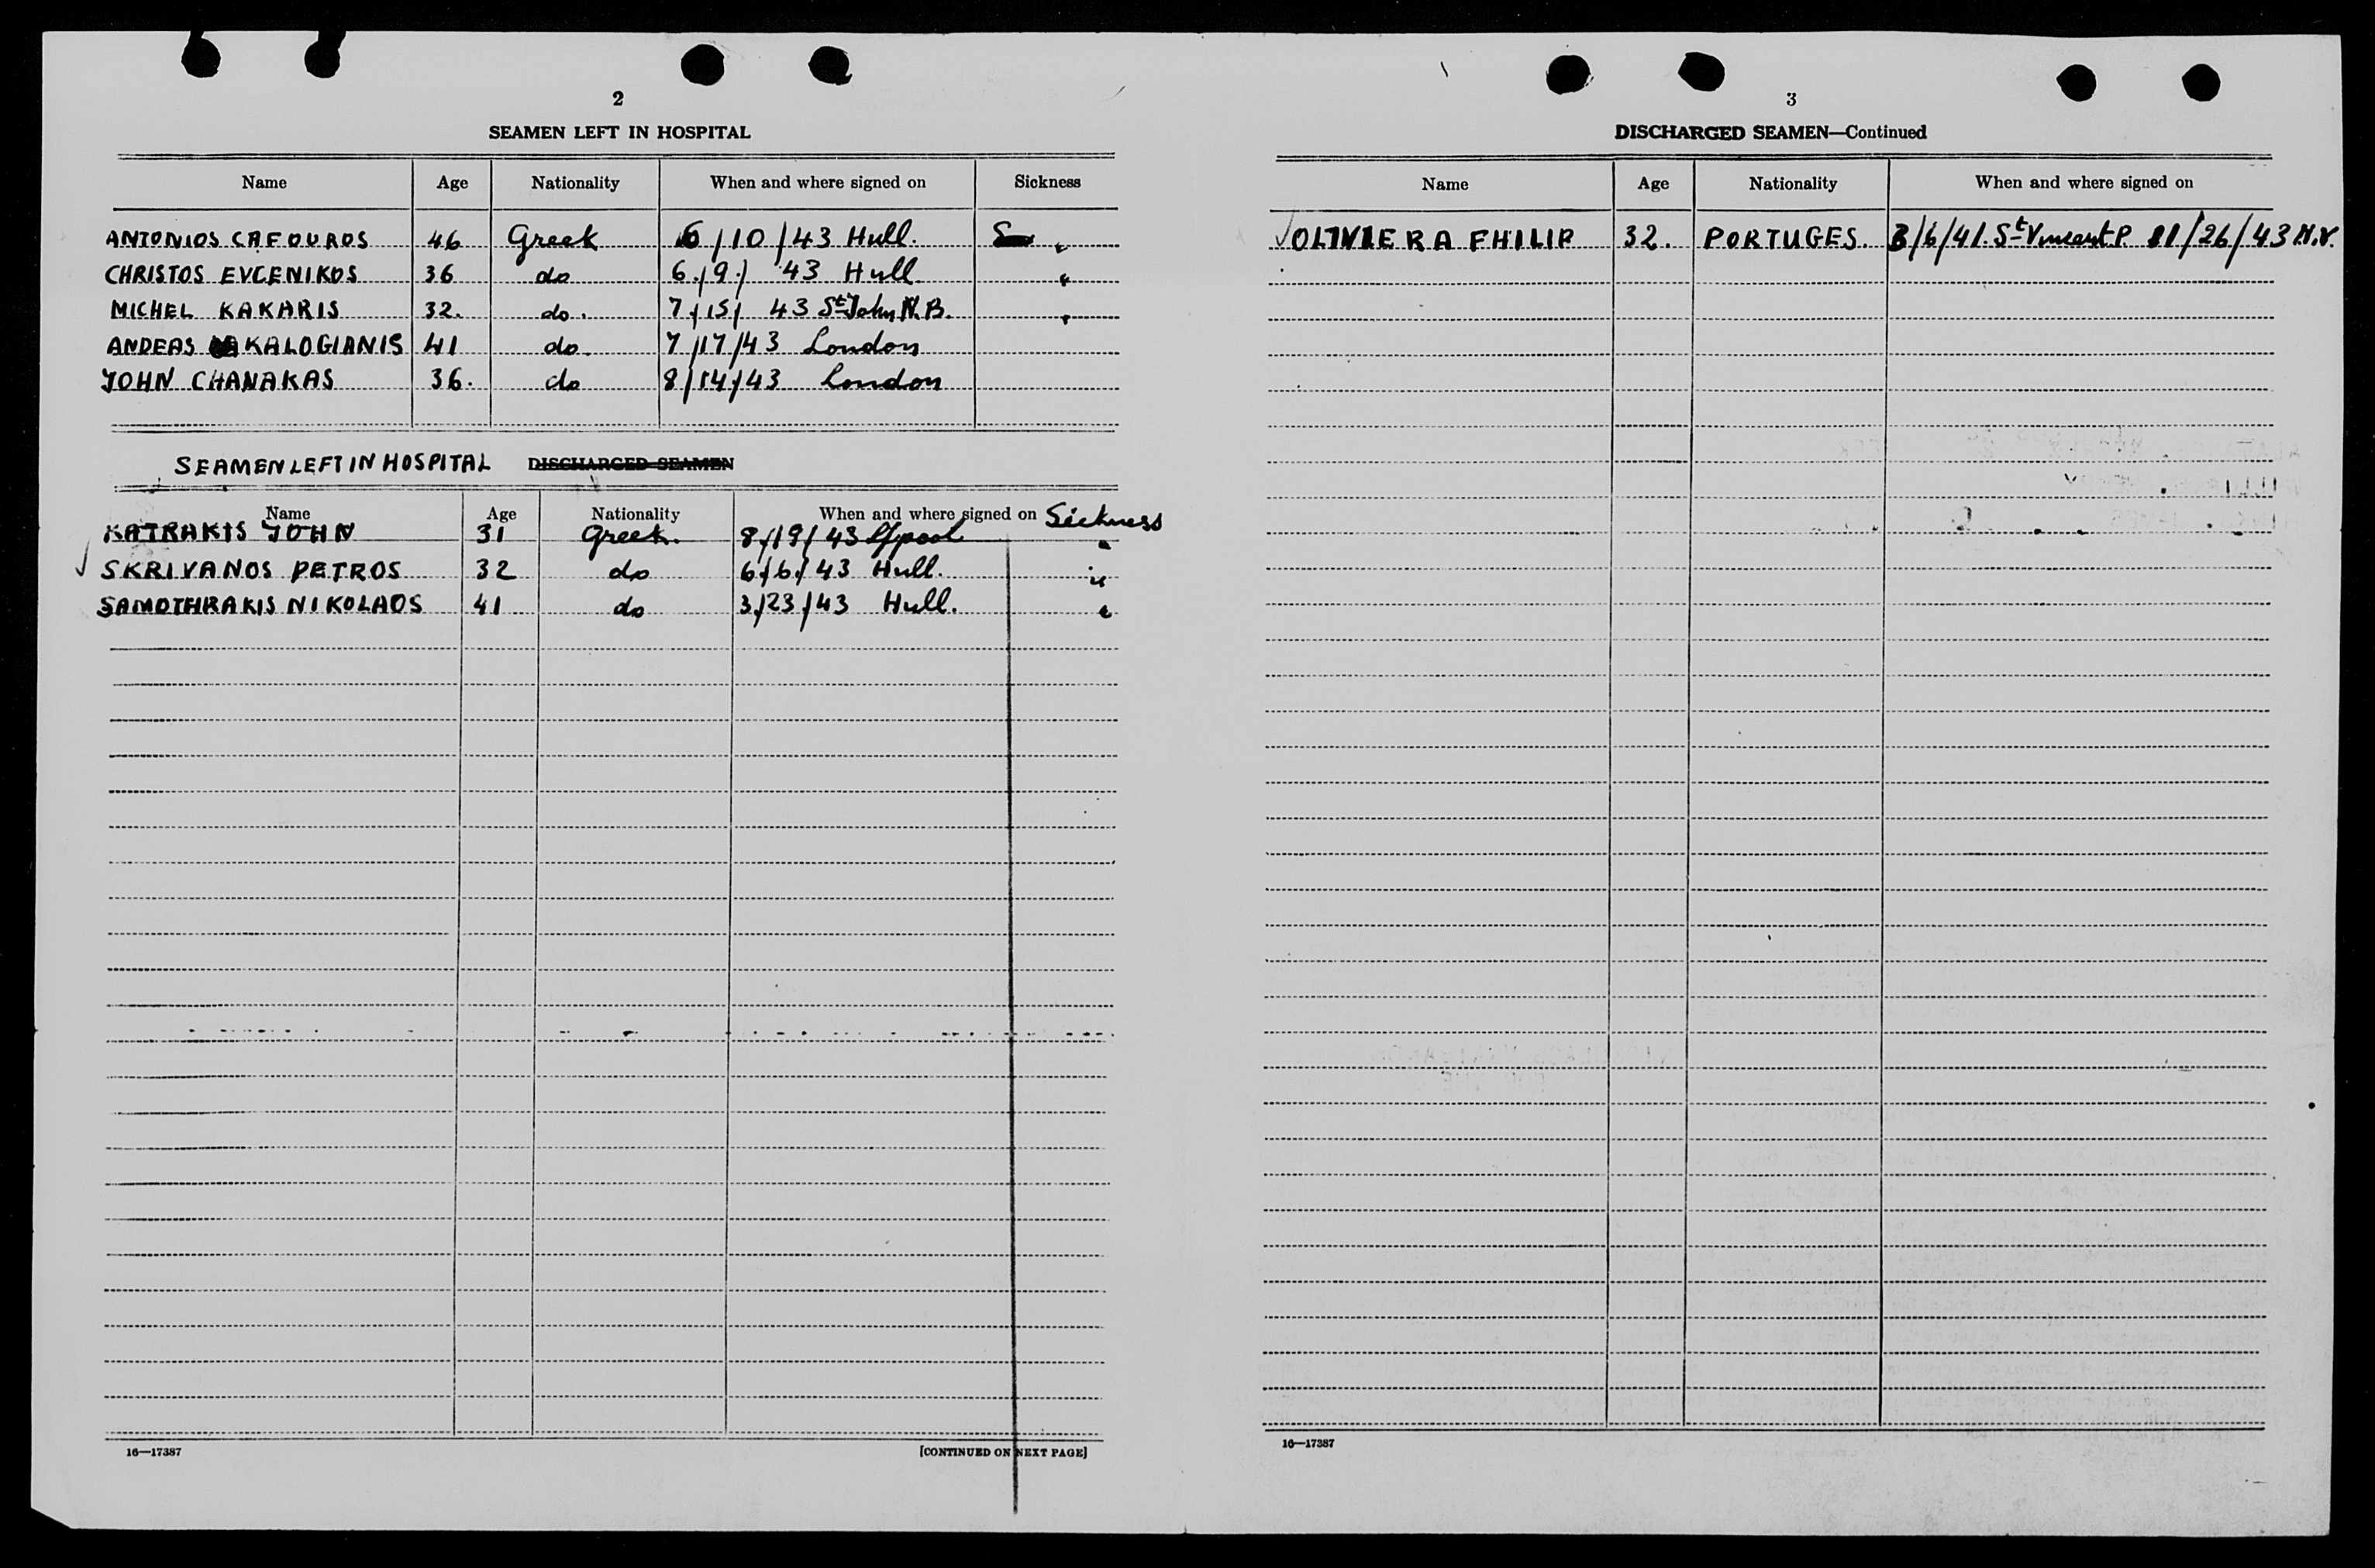 2
SEAMEN LEFT IN HOSPITAL
Name Age Nationality When and where signed on Sickness
ANTONIOS CAFOUROS 46 Greek 6/10/43 Hull. "
CHRISTOS EVGENIKOS 36 do 6/9/43 Hull "
MICHEL KAKARIS 32. do. 7/15/43 St John N.B. "
ANDEAS KALOGIANIS 41 do. 7/17/43 London
JOHN CHANAKAS 36. do 8/14/43 London
SEAMEN LEFT IN HOSPITAL DISCHARGED SEAMEN
Name Age Nationality When and where signed on Sickness
KATRAKIS JOHN 31 Greek. 8/19/43 L/pool "
✓ SKRIVANOS PETROS 32 do 6/6/43 Hull. "
SAMOTHRAKIS NIKOLAOS 41 do 3/23/43 Hull. "
16—17387 [CONTINUED ON NEXT PAGE]
3
DISCHARGED SEAMEN—Continued
Name Age Nationality When and where signed on
✓ OLIVIERA FHILIP 32. PORTUGES. 3/6/41. St Vincent P. 11/26/43 N.Y.
16—17387